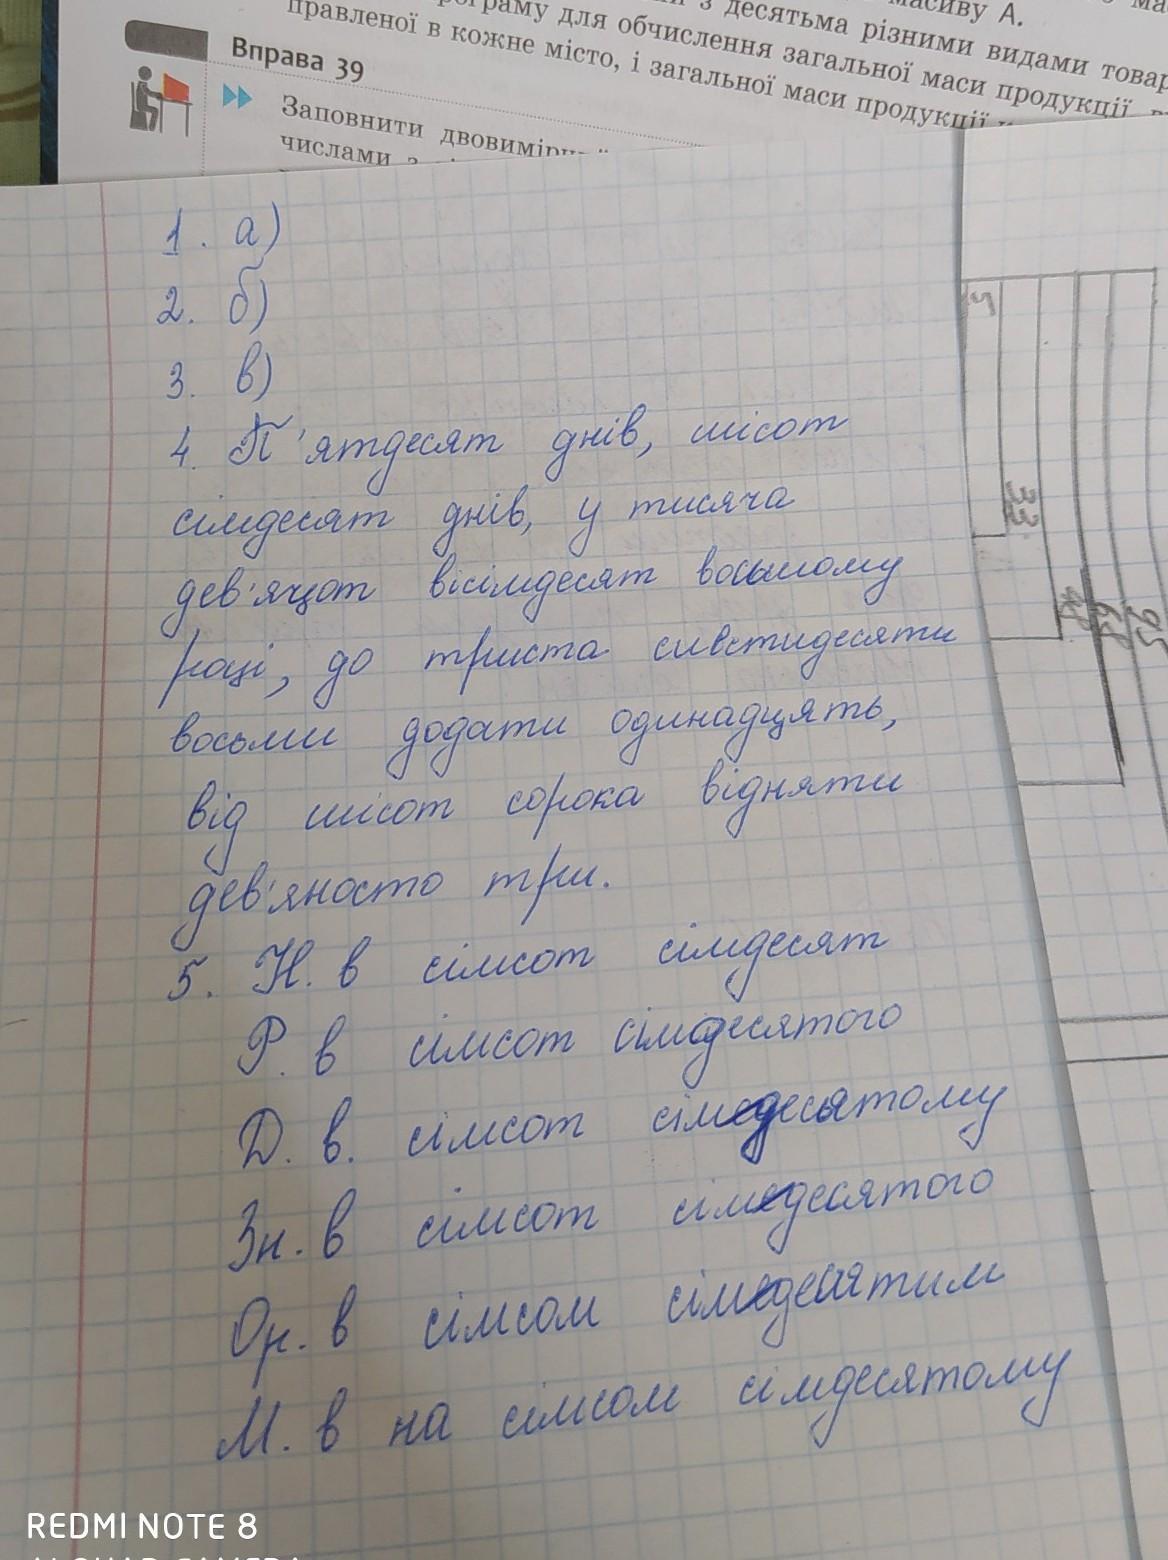 масиву А.
з десятьма різними видами товар
ограму для обчислення загальної маси продукції,
правленої в кожне місто, і загальної маси продукції
Вправа 39
Заповнити двовимірний
числами з
1. а)
2. б)
3. в)
4. П'ятдесят днів, шісот
сімдесят днів, у тисяча
дев'яцот вісімдесят восьмому
році, до триста
восьми додати одинадцять,
від шісот сорока відняти
дев'яносто три.
5. Н. в сімсот сімдесят
Р. в сімсот сімдесятого
Д. в. сімсот сімдесятому
Зн. в сімсот сімдесятого
Ор. в сімсом сімдесятим
М. в на сімсом сімдесятому
33
REDMI NOTE 8